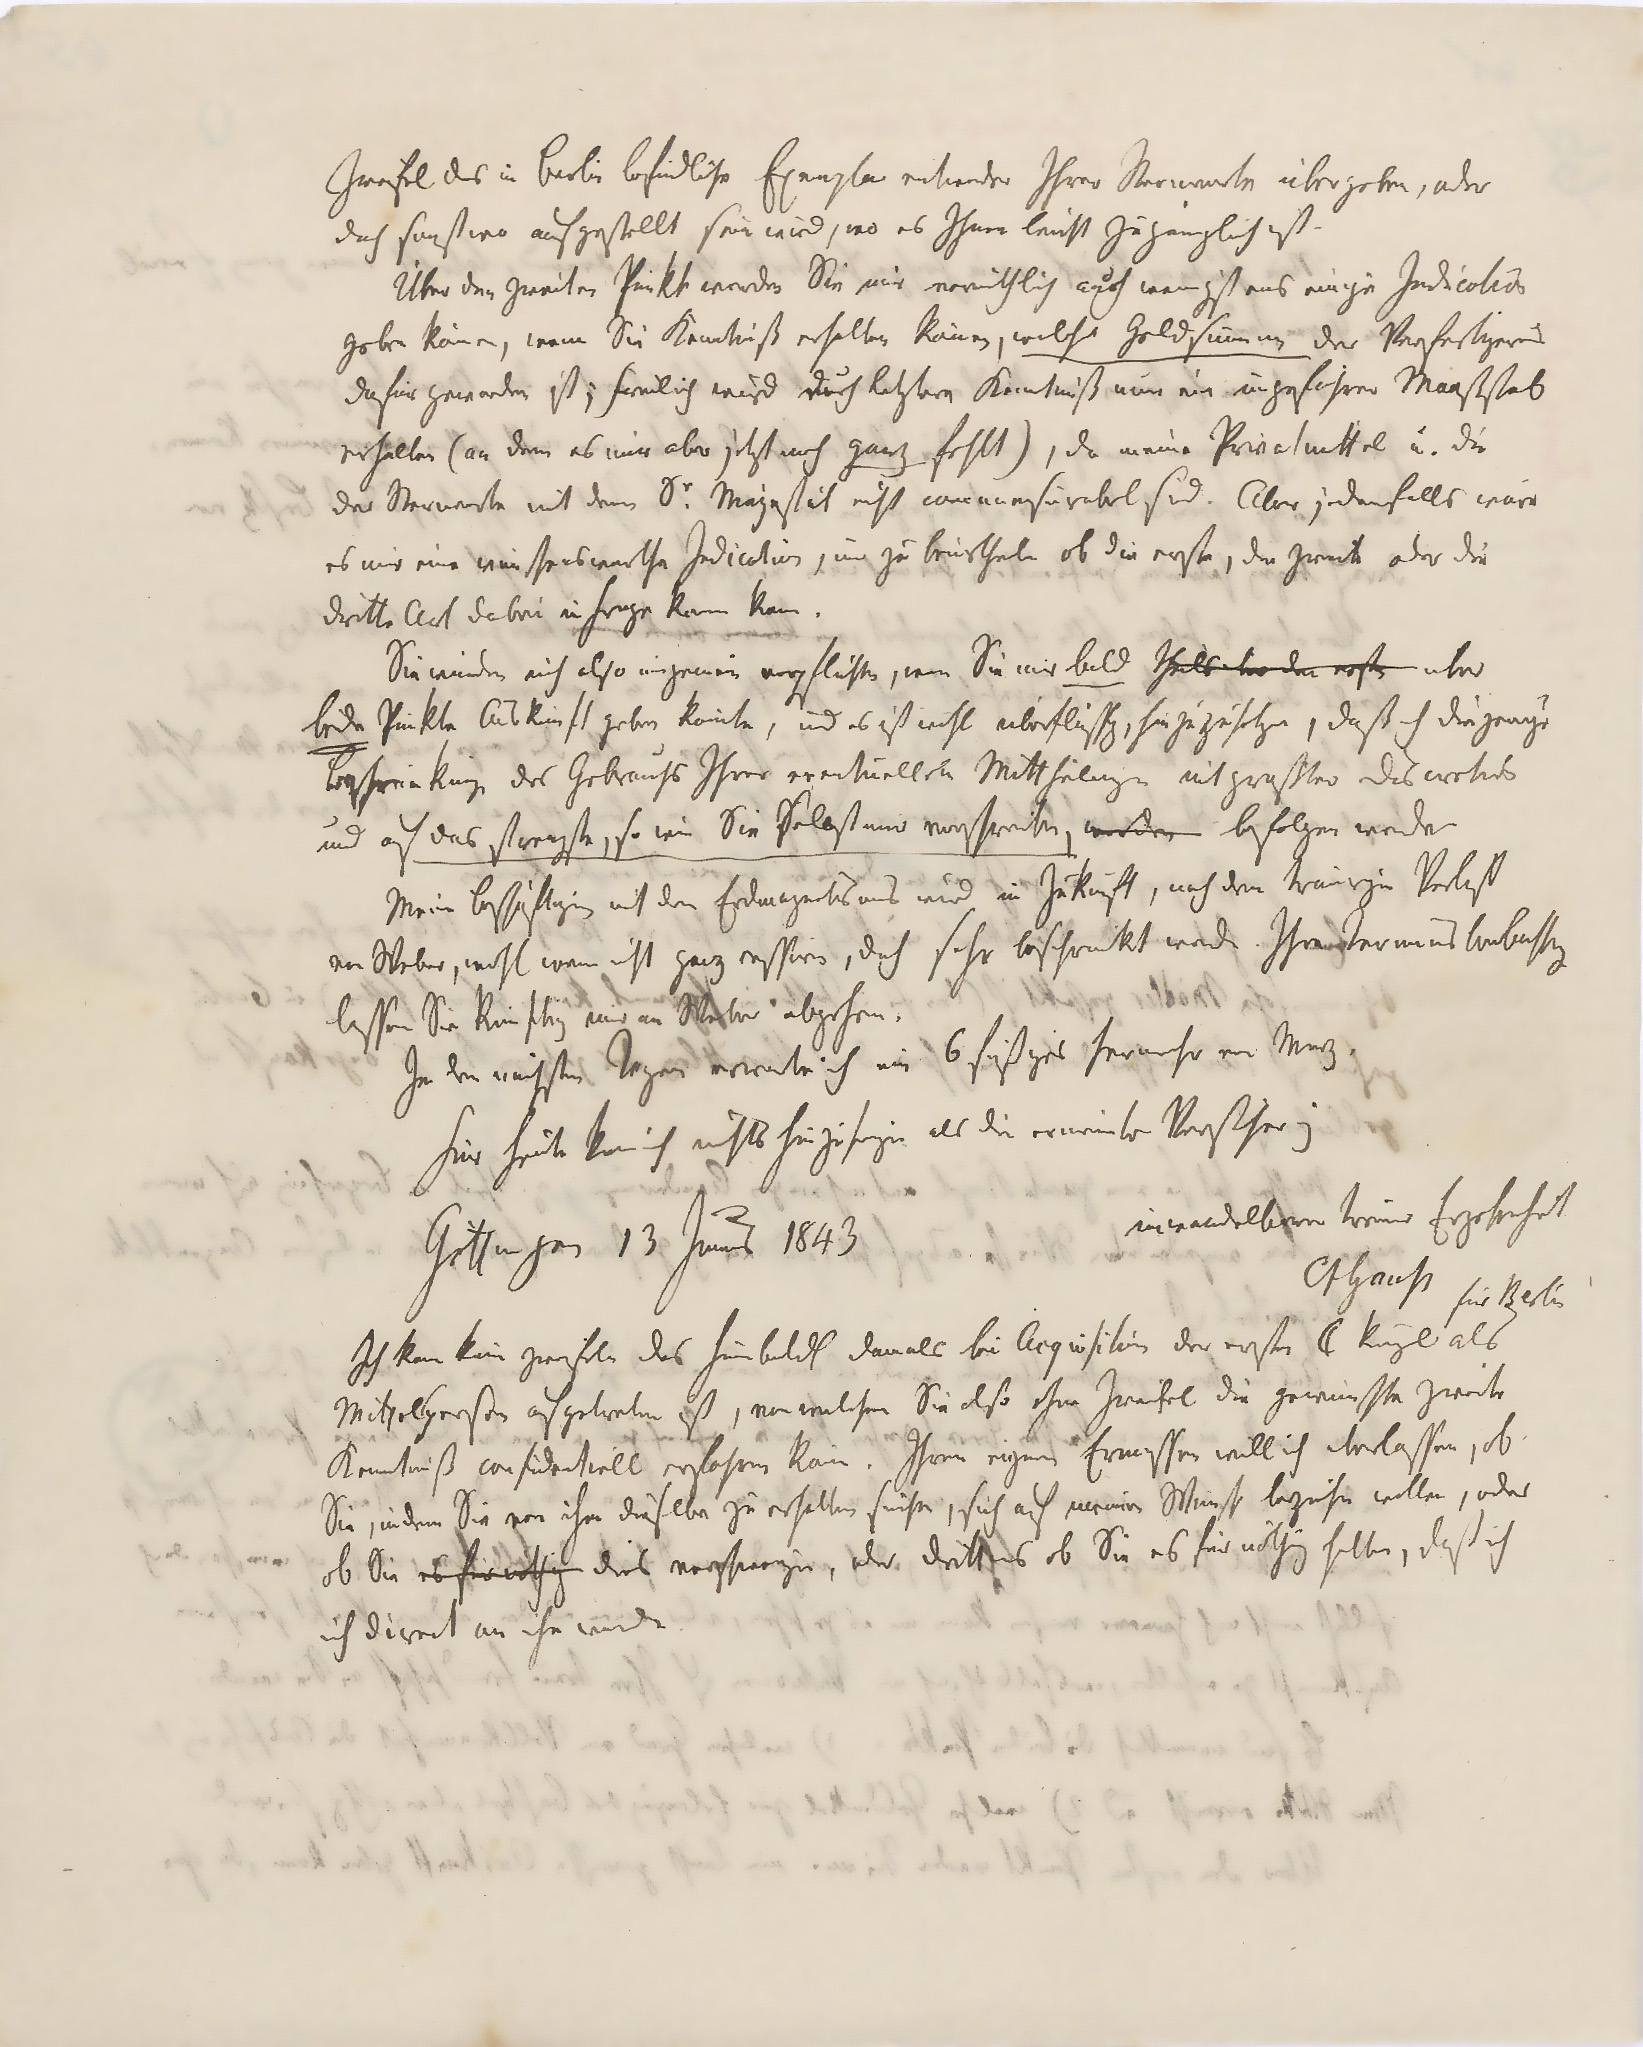 Zweifel das in Berlin befindliche Exemplar entweder Ihrer Sternwarte übergeben, oder
doch sonst wo aufgestellt sein wird, wo es Ihnen leicht zugänglich ist.
Über den zweiten Punkt werden Sie mir vermuthlich auch wenigstens einige Indication
geben können, wenn Sie Kenntniß erhalten können, welche Geldsumme der Verfertigerin
dafür geworden ist; freilich wird durch letztere Kenntniß nur ein ungefährer Maaßstab
erhalten (an dem es mir aber jetzt noch ganz fehlt), da meine Privatmittel u. die
der Sternwarte mit denen Sr. Majestät nicht commensurabel sind. Aber jedenfalls wäre
es mir eine wünschenswerthe Indication, um zu beurtheilen ob die erste, die zweite oder die
dritte Art dabei in Frage kommen kann.
Sie würden mich also ungemein verpflichten, wenn Sie mir bald theils über den ersten über
beide Punkte Auskunft geben könnten, und es ist wohl überflüssig, hinzuzusetzen, daß ich diejenige
Beschränkung des Gebrauchs Ihrer eventuellen Mittheilungen mit größter Discretion
und auf das strengste, so wie Sie Selbst mir vorschreiben, werden befolgen werde
Meine Beschäftigung mit dem Erdmagnetismus wird in Zukunft, nach dem traurigen Verlust
von Weber, wohl wenn nicht ganz cessiren, doch sehr beschränkt werden. Ihre Terminsbeobachtg
lassen Sie künftig nur an Weber abgehen.
In den nächsten Tagen erwarte ich ein 6 füßiges Fernrohr von Merz.
Für heute kann ich nichts hinzufügen als die erneuerte Versicherung
unwandelbarer treuer Ergebenheit
Göttingen 13 Junius 1843
CFGauß
für Berlin
Ich kann kaum zweifeln das Humboldt damals bei Acquisition der ersten ☾ Kugel als
Mittelsperson aufgetreten ist, von welchem Sie also ohne Zweifel die gewünschte zweite
Kenntniß confidentiell erfahren können. Ihrem eignen Ermessen will ich überlassen, ob
Sie, indem Sie von ihm dieselbe zu erhalten suchen, sich auf meinen Wunsch beziehen wollen, oder
ob Sie es für nöthig dies verschweigen, oder drittens ob Sie es für nöthig halten, daß ich
ich direct an ihn wende.